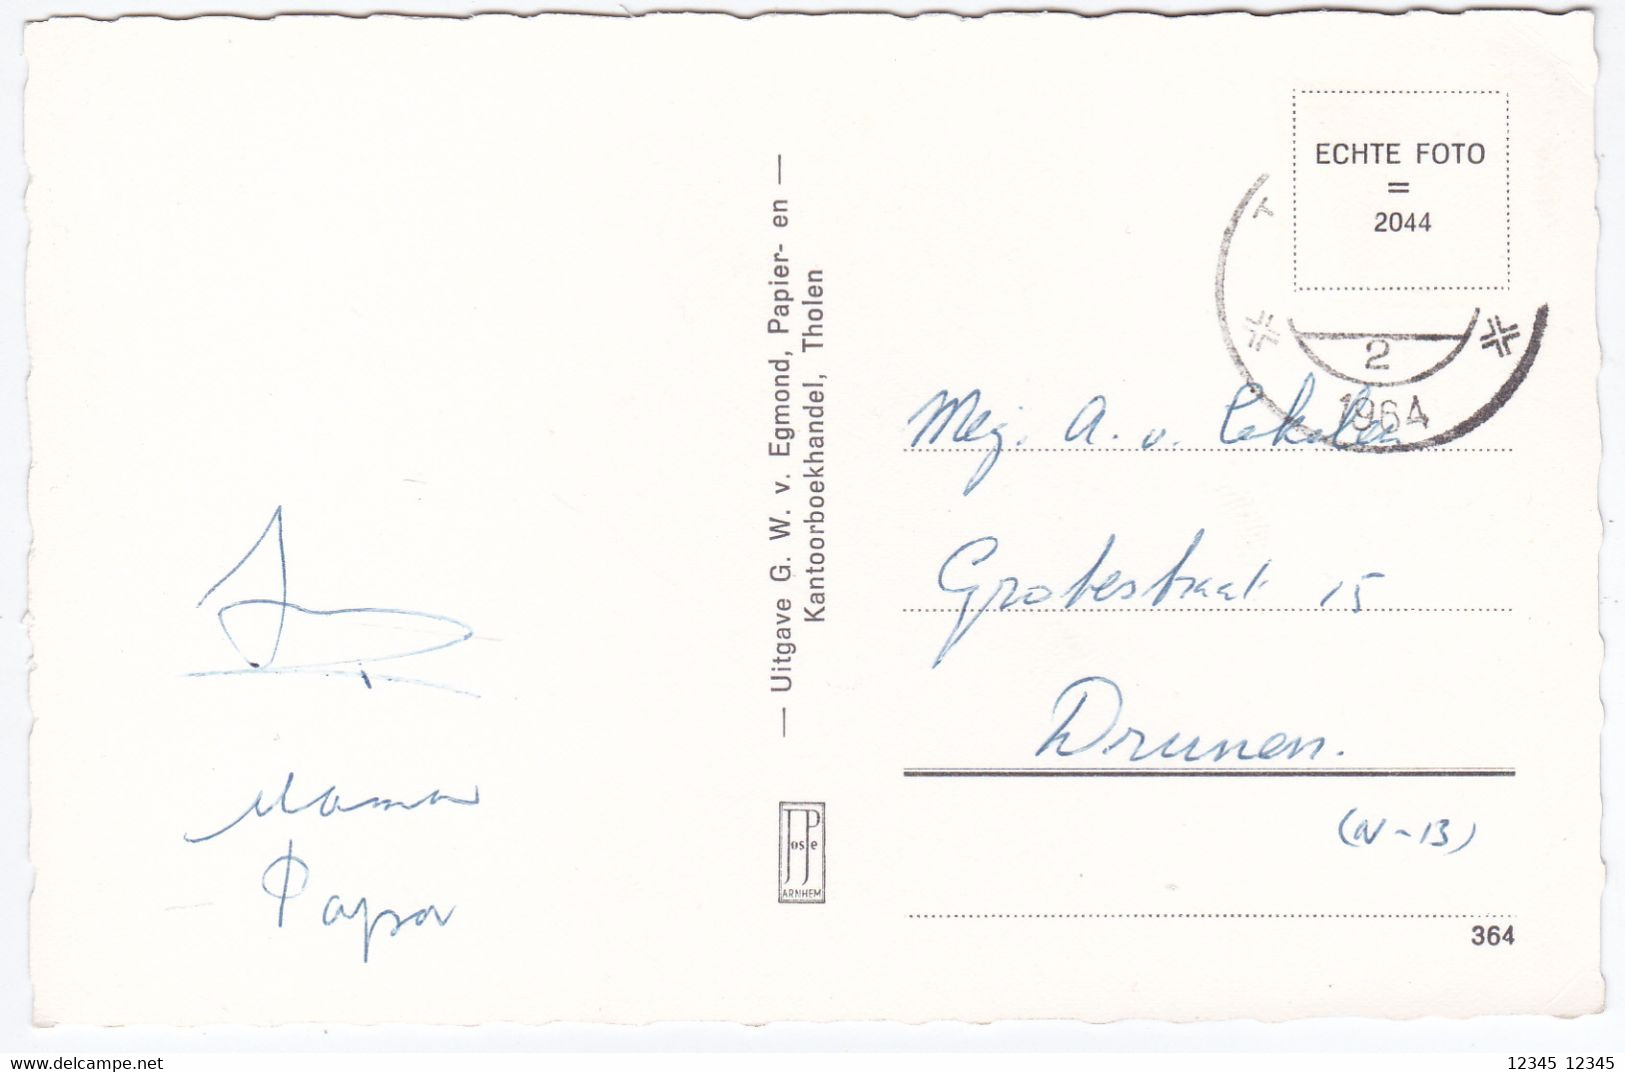 Mama
Papa
— Uitgave G. W. v. Egmond, Papier- en —
Kantoorboekhandel, Tholen
JosPé
ARNHEM
ECHTE FOTO
=
2044
2
1964
Mej. A. v.
Grotestraat 15
Drunen.
(N-B)
364
delcampe.net
12345 12345